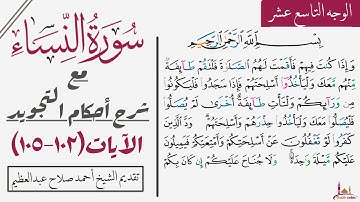 الوجه التاسع عشر
سورة النساء
مع
شرح أحكام التجويد
الآيات (١٠٢-١٠٥)
تقديم الشيخ أحمد صلاح عبدالعظيم
بِسْمِ اللَّهِ الرَّحْمَٰنِ الرَّحِيمِ
وَإِذَا كُنتَ فِيهِمْ فَأَقَمْتَ لَهُمُ الصَّلَاةَ فَلْتَقُمْ طَائِفَةٌ
مِّنْهُم مَّعَكَ وَلْيَأْخُذُوا أَسْلِحَتَهُمْ فَإِذَا سَجَدُوا فَلْيَكُونُوا
مِن وَرَائِكُمْ وَلْتَأْتِ طَائِفَةٌ أُخْرَىٰ لَمْ يُصَلُّوا
فَلْيُصَلُّوا مَعَكَ وَلْيَأْخُذُوا حِذْرَهُمْ وَأَسْلِحَتَهُمْ وَدَّ الَّذِينَ
كَفَرُوا لَوْ تَغْفُلُونَ عَنْ أَسْلِحَتِكُمْ وَأَمْتِعَتِكُمْ فَيَمِيلُونَ
عَلَيْكُم مَّيْلَةً وَاحِدَةً وَلَا جُنَاحَ عَلَيْكُمْ إِن كَانَ بِكُمْ